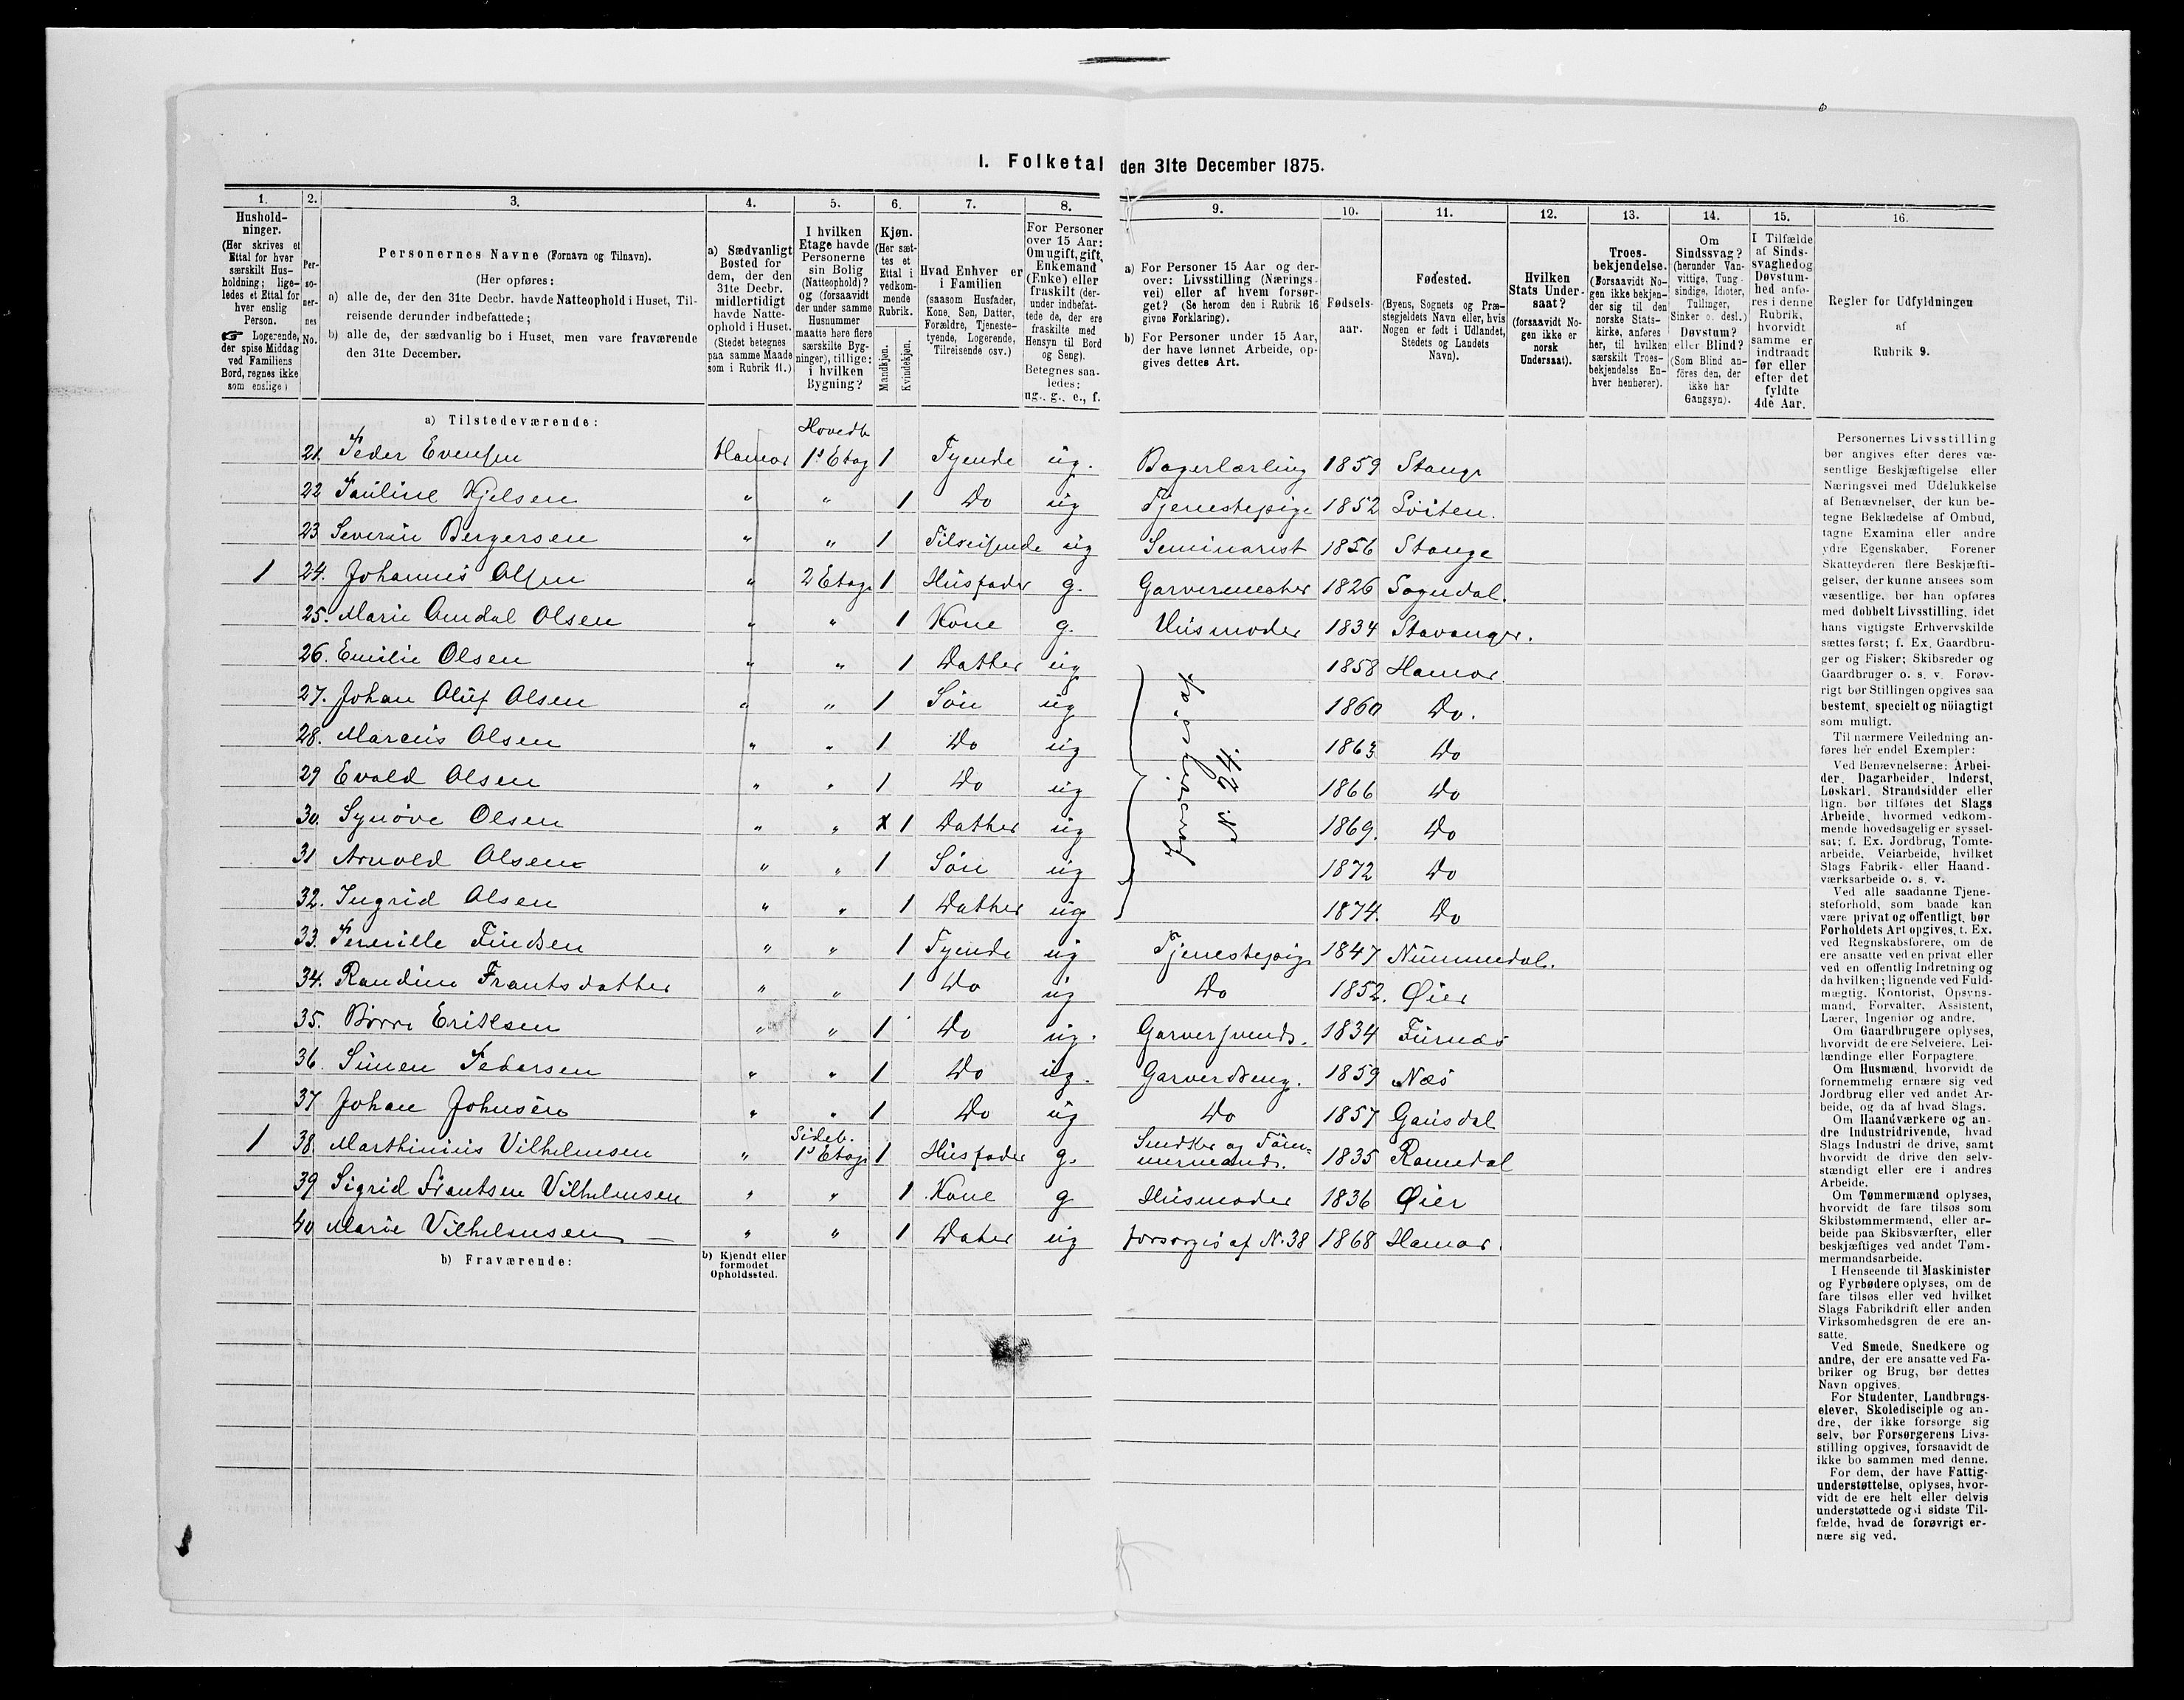 I. Folketal den 31te December 1875.
1. 2. 3. 4. 5. 6. 7. 8. 9. 10. 11. 12. 13. 14. 15. 16.
Hushold-
ninger.
(Her skrives et
Ettal for hver
særskilt Hus-
holdning; lige-
ledes et Ettal for
hver enslig
Person.
☞ Logerende,
der spise Middag
ved Familiens
Bord, regnes ikke
som enslige)
Per-
so-
ner-
nes
No.
Personernes Navne (Fornavn og Tilnavn).
(Her opføres:
a) alle de, der den 31te Decbr. havde Natteophold i Huset, Til-
reisende derunder indbefattede;
b) alle de, der sædvanlig bo i Huset, men vare fraværende
den 31te December.
a) Sædvanligt
Bosted for
dem, der den
31te Decbr.
midlertidigt
havde Natte-
ophold i Huset.
(Stedet betegnes
paa samme Maade
som i Rubrik 11.)
I hvilken
Etage havde
Personerne
sin Bolig
(Natteophold)?
og (forsaavidt
der under samme
Husnummer
maatte høre flere
særskilte Byg-
ninger), tillige:
i hvilken
Bygning?
Kjøn.
(Her sæt-
tes et
Ettal i
vedkom-
mende
Rubrik.
Mandkjøn.
Kvindekjøn.
Hvad Enhver er
i Familien
(saasom Husfader,
Kone, Søn, Datter,
Forældre, Tjeneste-
tyende, Logerende,
Tilreisende osv.)
For Personer
over 15 Aar:
Om ugift, gift,
Enkemand
(Enke) eller
fraskilt (der-
under indbefat-
tede de, der ere
fraskilte med
Hensyn til Bord
og Seng).
Betegnes saa-
ledes:
ug., g., e., f.
a) For Personer 15 Aar og der-
over: Livsstilling (Nærings-
vei) eller af hvem forsør-
get? (Se herom den i Rubrik 16
givne Forklaring).
b) For Personer under 15 Aar,
der have lønnet Arbeide, op-
gives dettes Art.
Fødsels-
aar.
Fødested.
(Byens, Sognets og Præ-
stegjeldets Navn eller, hvis
Nogen er født i Udlandet,
Stedets og Landets
Navn).
Hvilken
Stats Under-
saat?
(forsaavidt No-
gen ikke er
norsk
Undersaat).
Troes-
bekjendelse.
(Forsaavidt No-
gen ikke bekjen-
der sig til den
norske Stats-
kirke, anføres
her, til hvilken
særskilt Troes-
bekjendelse En-
hver henhører).
Om
Sindssvag?
(herunder Van-
vittige, Tung-
sindige, Idioter,
Tullinger,
Sinker o. desl.)
Døvstum?
eller Blind?
(Som Blind an-
føres den, der
ikke har
Gangsyn).
I Tilfælde
af Sinds-
svaghed og
Døvstum-
hed anfø-
res i denne
Rubrik,
hvorvidt
samme er
indtraadt
før eller
efter det
fyldte
4de Aar.
Regler for Udfyldningen
af
Rubrik 9.
a) Tilstedeværende:
Hovedb
21. Peder Evensen Hamar 1ste Etag 1 Tyende ug. Bagerlærling 1859 Stange
22 Pauline Kjelsen " " 1 Do ug Tjenestepige 1852 Løiten.
23 Severin Bergersen " " 1 Tilreisende ug Seminarist 1856 Stange
1 24. Johannes Olsen " 2 Etage 1 Husfader g. Garvermester 1826 Sogndal.
25. Marie Omdal Olsen " " 1 Kone g. Husmoder 1834 Stavanger.
26. Emilie Olsen " " 1 Datter ug 1858 Hamar
27. Johan Oluf Olsen " " 1 Søn ug 1860 Do.
28. Marcus Olsen " " 1 Do ug 1863 Do
29 Evald Olsen " " 1 Do ug 1866 Do
30. Synøve Olsen " " x 1 Datter ug 1869. Do
31 Arnold Olsen " " 1 Søn ug 1872 Do
32. Ingrid Olsen " " 1 Datter ug 1874. Do
Forsørges af
N. 24
33. Pernille Findsen " " 1 Tyende ug Tjenestepige 1847 Nummedal.
34. Randine Frantsdatter " " 1 Do ug Do 1852. Øier
35. Børre Eriksen " " 1 Do ug. Garversvend. 1834 Furnæs
36. Simen Pedersen " " 1 Do ug. Garverdreng. 1859 Næs
37 Johan Johnsen " " 1 Do ug Do 1857 Gausdal
Sideb.
1 38. Marthinius Vilhelmsen " 1ste Etage 1 Husfader g. Snedker og Tøm-
mermand. 1835 Romedal
39 Sigrid Frantsen Vilhelmsen " " 1 Kone g Husmoder 1836 Øier
40 Marie Vilhelmsen " " 1 Dater ug forsørges af N. 38 1868 Hamar.
b) Fraværende:
b) Kjendt eller
formodet
Opholdssted.
Personernes Livsstilling
bør angives efter deres væ-
sentlige Beskjæftigelse eller
Næringsvei med Udelukkelse
af Benævnelser, der kun be-
tegne Beklædelse af Ombud,
tagne Examina eller andre
ydre Egenskaber. Forener
Skatteyderen flere Beskjæfti-
gelser, der kunne ansees som
væsentlige, bør han opføres
med dobbelt Livsstilling, idet
hans vigtigste Erhvervskilde
sættes først; f. Ex. Gaardbru-
ger og Fisker; Skibsreder og
Gaardbruger o. s. v. Forøv-
rigt bør Stillingen opgives saa
bestemt, specielt og nöiagtigt
som muligt.
Til nærmere Veiledning an-
føres her endel Exempler:
Ved Benævnelserne: Arbei-
der, Dagarbeider, Inderst,
Løskarl, Strandsidder eller
lign. bør tilføies det Slags
Arbeide, hvormed vedkom-
mende hovedsagelig er syssel-
sat; f. Ex. Jordbrug, Tomte-
arbeide, Veiarbeide, hvilket
Slags Fabrik- eller Haand-
værksarbeide o. s. v.
Ved alle saadanne Tjene-
steforhold, som baade kan
være privat og offentligt, bør
Forholdets Art opgives, t. Ex.
ved Regnskabsførere, om de
ere ansatte ved en privat eller
ved en offentlig Indretning og
da hvilken; lignende ved Fuld-
mægtig, Kontorist, Opsyns-
mand, Forvalter, Assistent,
Lærer, Ingeniør og andre.
Om Gaardbrugere oplyses,
hvorvidt de ere Selveiere, Lei-
lændinge eller Forpagtere.
Om Husmænd, hvorvidt de
fornemmelig ernære sig ved
Jordbrug eller ved andet Ar-
beide, og da af hvad Slags.
Om Haandværkere og an-
dre Industridrivende, hvad
Slags Industri de drive, samt
hvorvidt de drive den selv-
stændigt eller ere i andres
Arbeide.
Om Tømmermænd oplyses,
hvorvidt de fare tilsøs som
Skibstømmermænd, eller ar-
beide paa Skibsværfter, eller
beskjæftiges ved andet Tøm-
mermandsarbeide.
I Henseende til Maskinister
og Fyrbødere oplyses, om de
fare tilsøs eller ved hvilket
Slags Fabrikdrift eller anden
Virksomhedsgren de ere an-
satte.
Ved Smede, Snedkere og
andre, der ere ansatte ved Fa-
briker og Brug, bør dettes
Navn opgives.
For Studenter, Landbrugs-
elever, Skoledisciple og an-
dre, der ikke forsørge sig
selv, bør Forsørgerens Livs-
stilling opgives, forsaavidt de
ikke bo sammen med denne.
For dem, der have Fattig-
understøttelse, oplyses, hvor-
vidt de ere helt eller delvis
understøttede og i sidste Til-
fælde, hvad de forøvrigt er-
nære sig ved.